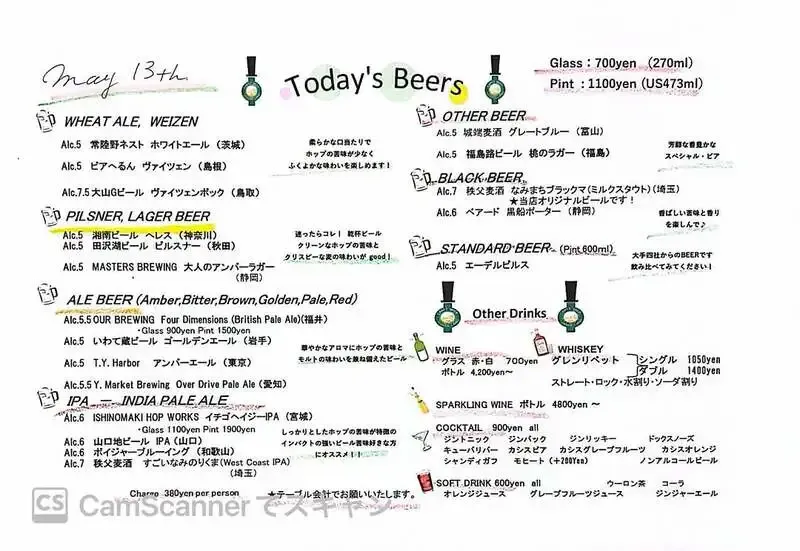 May 13th.
Today's Beers
Glass：700yen （270ml）
Pint ：1100yen（US473ml）
WHEAT ALE, WEIZEN
Alc.5 常陸野ネスト ホワイトエール（茨城）
Alc.5 ビアへるん ヴァイツェン（島根）
Alc.7.5 大山Gビール ヴァイツェンボック（鳥取）
柔らかな口当たりで
ホップの苦味が少なく
ふくよかな味わいを楽しめます！
PILSNER, LAGER BEER
Alc.5 湘南ビール ヘレス（神奈川）
Alc.5 田沢湖ビール ピルスナー（秋田）
Alc.5 MASTERS BREWING 大人のアンバーラガー
（静岡）
迷ったらコレ！ 乾杯ビール
クリーンなホップの苦味と
クリスピーな麦の味わいが good！
ALE BEER（Amber,Bitter,Brown,Golden,Pale,Red）
Alc.5.5 OUR BREWING Four Dimensions (British Pale Ale)（福井）
・Glass 900yen Pint 1500yen
Alc.5 いわて蔵ビール ゴールデンエール（岩手）
Alc.5 T.Y. Harbor アンバーエール（東京）
Alc.5.5 Y. Market Brewing Over Drive Pale Ale（愛知）
華やかなアロマにホップの苦味と
モルトの味わいを兼ね備えたビール
IPA － INDIA PALE ALE
Alc.6 ISHINOMAKI HOP WORKS イチゴヘイジーIPA（宮城）
・Glass 1100yen Pint 1900yen
Alc.6 山口地ビール IPA（山口）
Alc.6 ボイジャーブルーイング（和歌山）
Alc.7 秩父麦酒 すごいなみのりくま(West Coast IPA)
（埼玉）
しっかりとしたホップの苦味が特徴の
インパクトの強いビール苦味好きな方
にオススメ！！
Charge 380yen per person
★テーブル会計でお願いいたします。
OTHER BEER
Alc.5 城端麦酒 グレートブルー（富山）
Alc.5 福島路ビール 桃のラガー（福島）
芳醇な香豊かな
スペシャル・ビア
BLACK BEER
Alc.7 秩父麦酒 なみまちブラックマ（ミルクスタウト）（埼玉）
★当店オリジナルビールです！
Alc.6 ベアード 黒船ポーター（静岡）
香ばしい苦味と香り
を楽しんで♪
STANDARD BEER （Pint,600ml）
Alc.5 エーデルピルス
大手四社からのBEERです
飲み比べてみてください！
Other Drinks
WINE
グラス 赤・白 700yen
ボトル 4,200yen～
WHISKEY
グレンリベット シングル 1050yen
ダブル 1400yen
ストレート・ロック・水割り・ソーダ割り
SPARKLING WINE ボトル 4800yen ～
COCKTAIL 900yen all
ジントニック ジンバック ジンリッキー ドックスノーズ
キューバリバー カシスビア カシスグレープフルーツ カシスオレンジ
シャンディガフ モヒート（＋200Yen） ノンアルコールビール
SOFT DRINK 600yen all ウーロン茶 コーラ
オレンジジュース グレープフルーツジュース ジンジャーエール
CS CamScanner でスキャン